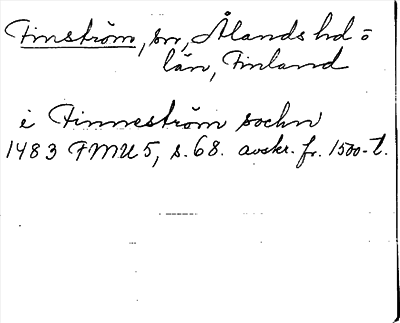 Finström, sn, Ålands hd o
län, Finland
i Finneström sochn
1483 FMU 5, s. 68. avskr. fr. 1500-t.